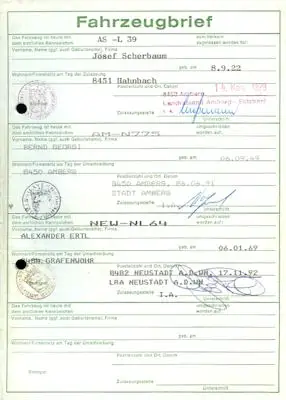 Fahrzeugbrief
Das Fahrzeug ist heute mit
dem amtlichen Kennzeichen AS -L 39 zum Verkehr
zugelassen worden für:
Vorname, Name (ggf. auch Geburtsname), Firma
Josef Scherbaum
geb. am 8.9.22
Wohnort/Firmensitz am Tag der Zulassung
8451 Hahnbach
Postleitzahl und Ort, Datum
8450 Amberg
Zulassungsstelle
Unterschrift
Das Fahrzeug ist heute mit
dem amtlichen Kennzeichen AM-N775 umgeschrieben
worden auf:
Vorname, Name (ggf. auch Geburtsname), Firma
BERND GEORGI
geb. am 06.09.49
Wohnort/Firmensitz am Tag der Umschreibung
8450 AMBERG
Postleitzahl und Ort, Datum
8450 AMBERG, 06.06.91
STADT AMBERG
Zulassungsstelle
Unterschrift
Das Fahrzeug ist heute mit
dem amtlichen Kennzeichen NEW-NL64 umgeschrieben
worden auf:
Vorname, Name (ggf. auch Geburtsname), Firma
ALEXANDER ERTL
geb. am 06.01.69
Wohnort/Firmensitz am Tag der Umschreibung
GRAFENWÖHR
Postleitzahl und Ort, Datum
8482 NEUSTADT A.D.WN, 17.11.92
LRA NEUSTADT A.D.WN
Zulassungsstelle
I.A.
Unterschrift
Das Fahrzeug ist heute mit
dem amtlichen Kennzeichen umgeschrieben
worden auf:
Vorname, Name (ggf. auch Geburtsname), Firma
geb. am
Wohnort/Firmensitz am Tag der Umschreibung
Postleitzahl und Ort, Datum
Stempel
Zulassungsstelle
Unterschrift